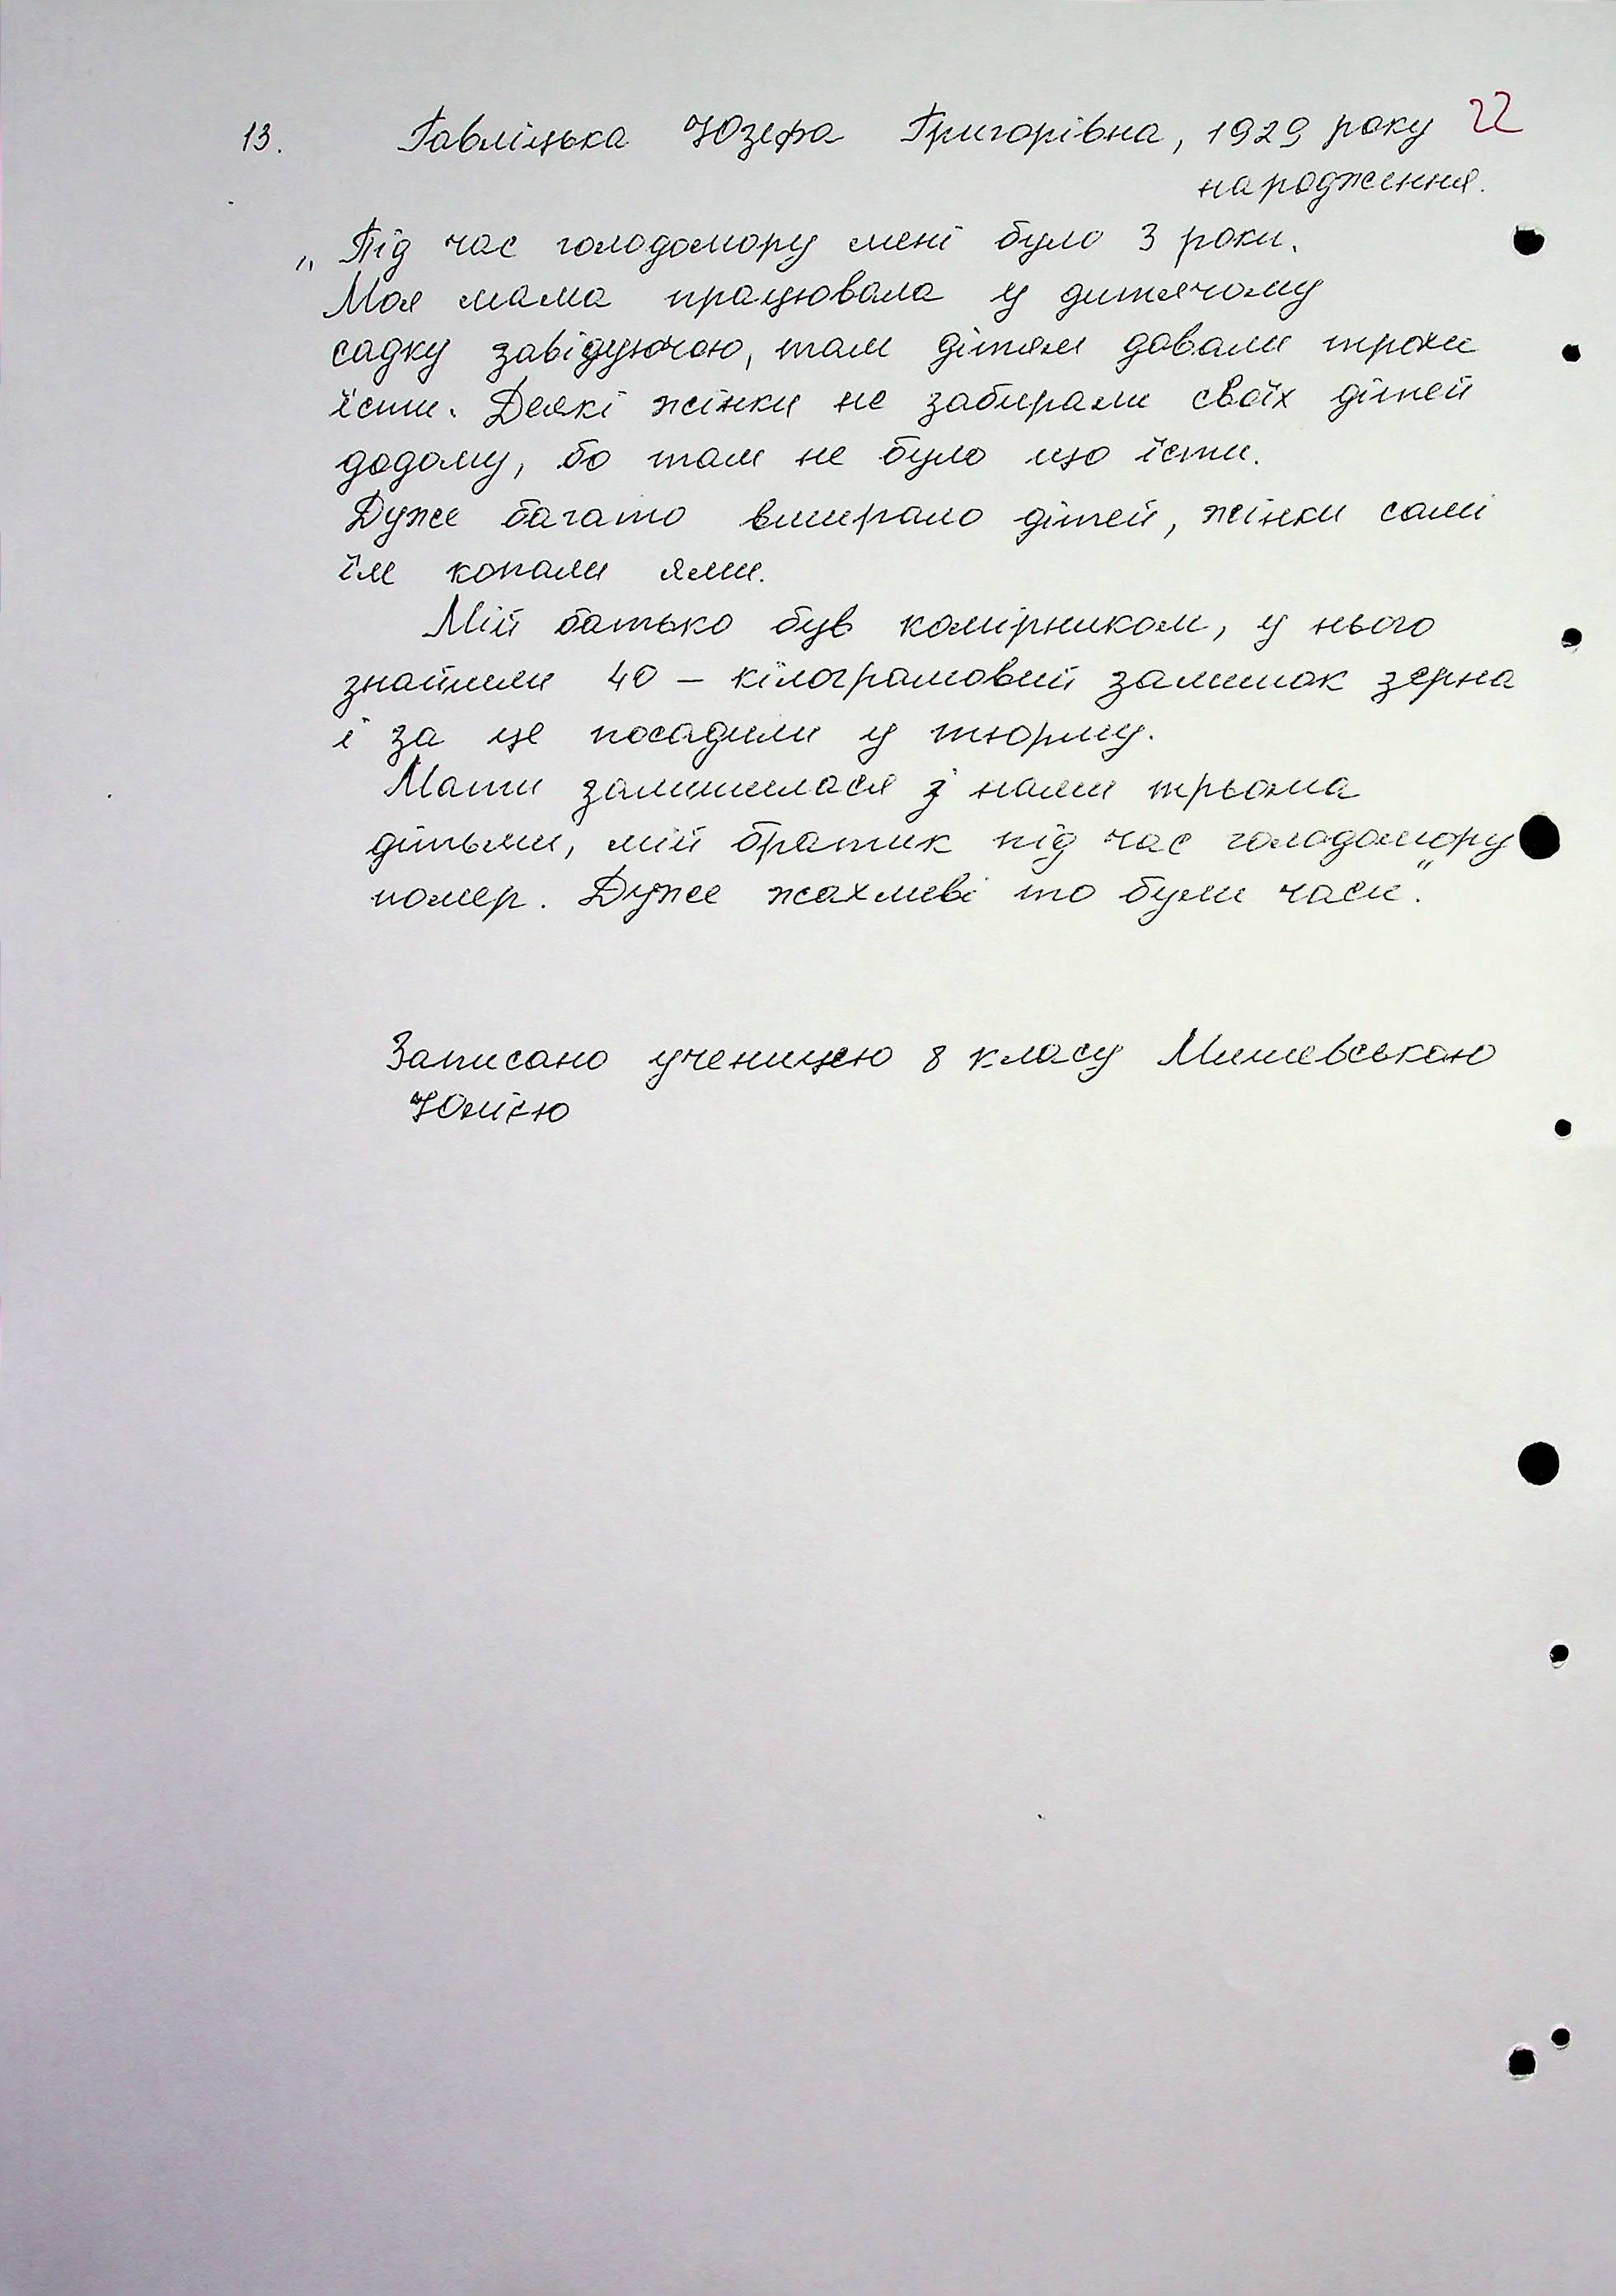 13. Гавліцька Юзефа Григорівна, 1929 року 22
народження.
„Під час голодомору мені було 3 роки.
Моя мама працювала у дитячому
садку завідуючою, там дітям давали трохи
їсти. Деякі жінки не забирали своїх дітей
додому, бо там не було що їсти.
Дуже багато вмирало дітей, жінки самі
їм копали ями.
Мій батько був комірником, у нього
знайшли 40 – кілограмовий залишок зерна
і за це посадили у тюрму.
Мати залишилася з нами трьома
дітьми, мій братик під час голодомору
помер. Дуже жахливі то були часи".
Записано ученицею 8 класу Мишевською
Юлією